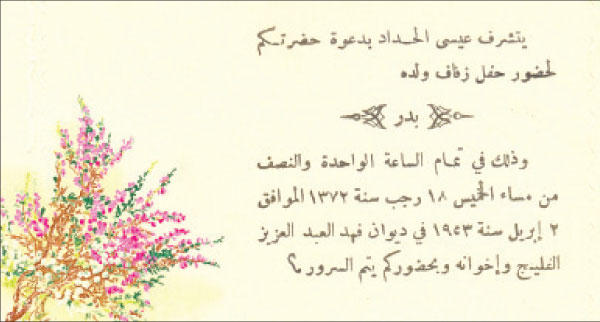 يتشرف عيسى الحداد بدعوة حضرتكم
لحضور حفل زفاف ولده
بدر
وذلك في تمام الساعة الواحدة والنصف
من مساء الخميس ١٨ رجب سنة ١٣٧٢ الموافق
٢ إبريل سنة ١٩٥٣ في ديوان فهد العبد العزيز
الفليج وإخوانه وبحضوركم يتم السرور